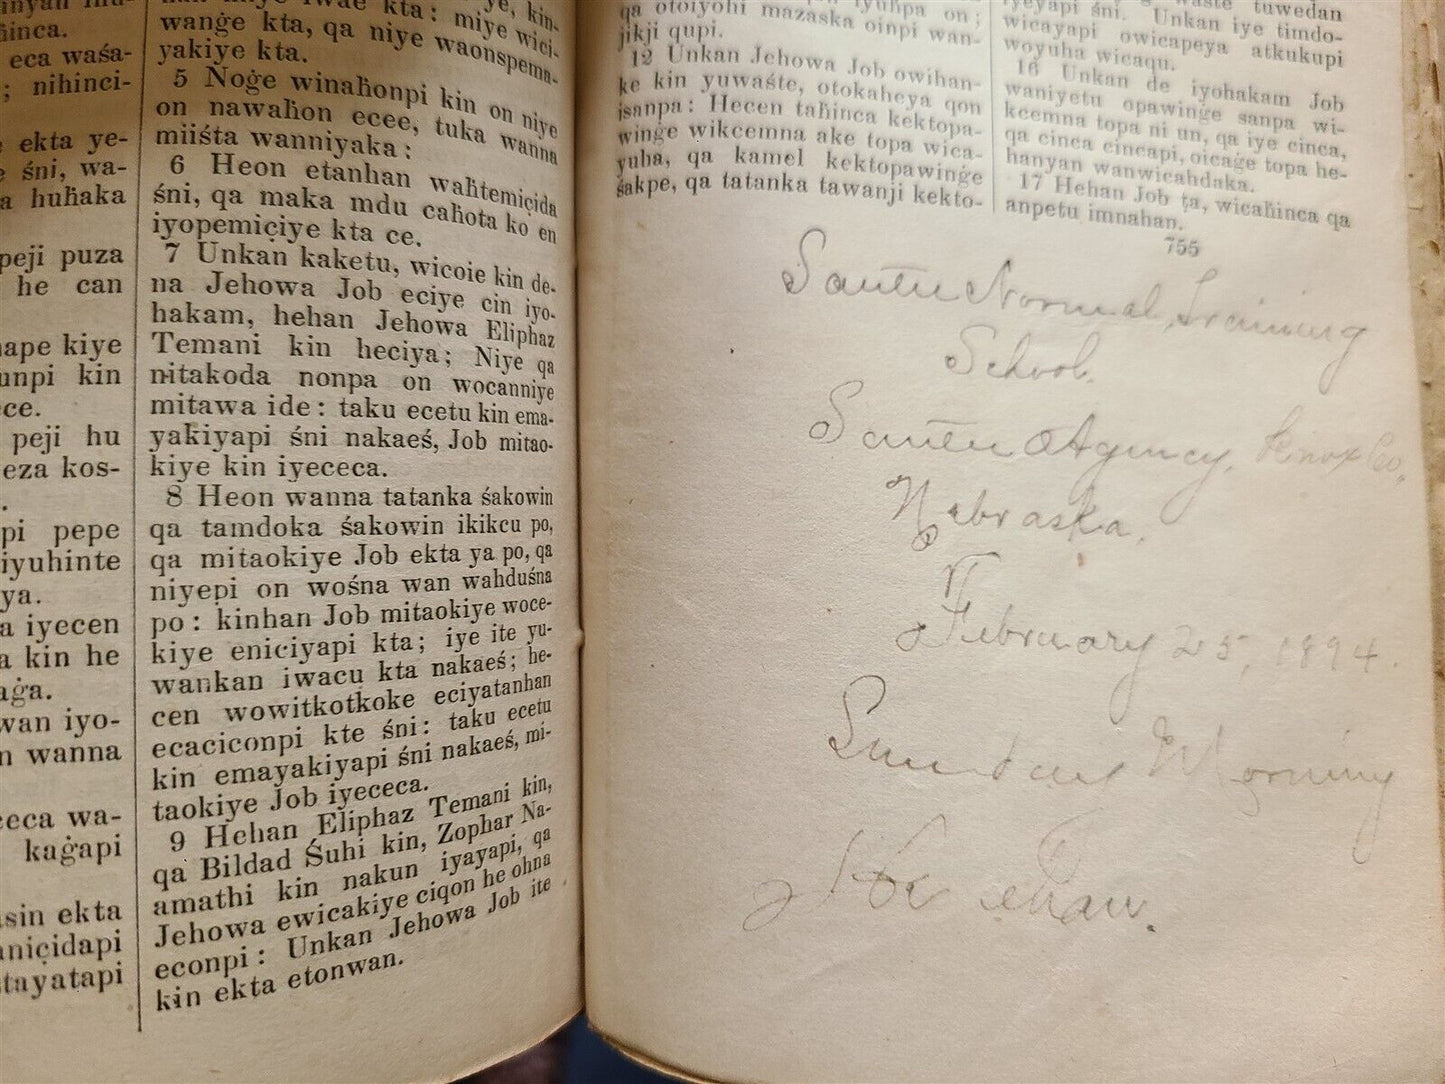 hinca.
eca waśa-
; nihinci-
ekta ye-
śni, wa-
a huḣaka
peji puza
he can
ape kiye
unpi kin
ce.
peji hu
eza kos-
pi pepe
iyuhinte
ya.
a iyecen
a kin he
aġa.
wan iyo-
n wanna
ceca wa-
kaġapi
sin ekta
aniçidapi
tayatapi
kta: miye wici-
wanġe kta, qa niye waonspema-
yakiye kta.
5 Noġe winaḣonpi kin on niye
on nawaḣon ecee, tuka wanna
miiśta wanniyaka:
6 Heon etanhan waḣtemiçida
śni, qa maka mdu caḣota ko en
iyopemiçiye kta ce.
7 Unkan kaketu, wicoie kin de-
na Jehowa Job eciye cin iyo-
hakam, hehan Jehowa Eliphaz
Temani kin heciya; Niye qa
nitakoda nonpa on wocanniye
mitawa ide: taku ecetu kin ema-
yakiyapi śni nakaeś, Job mitao-
kiye kin iyececa.
8 Heon wanna tatanka śakowin
qa tamdoka śakowin ikikcu po,
qa mitaokiye Job ekta ya po, qa
niyepi on wośna wan wahduśna
po: kinhan Job mitaokiye woce-
kiye eniciyapi kta; iye ite yu-
wankan iwacu kta nakaeś; he-
cen wowitkotkoke eciyatanhan
ecaciconpi kte śni: taku ecetu
kin emayakiyapi śni nakaeś, mi-
taokiye Job iyececa.
9 Hehan Eliphaz Temani kin,
qa Bildad Śuhi kin, Zophar Na-
amathi kin nakun iyayapi, qa
Jehowa ewicakiye ciqon he ohna
econpi: Unkan Jehowa Job ite
kin ekta etonwan.
qa otoiyohi mazaska oinpi wan-
jikji qupi.
12 Unkan Jehowa Job owihan-
ke kin yuwaśte, otokaheya qon
isanpa: Hecen taḣinca kektopa-
winġe wikcemna ake topa wica-
yuha, qa kamel kektopawinġe
śakpe, qa tatanka tawanji kekto-
tuwedan
iyeyapi śni. Unkan iye timdo-
wicayapi owicapeya atkukupi
woyuha wicaqu.
16 Unkan de iyohakam Job
waniyetu opawinġe sanpa wi-
kcemna topa ni un, qa iye cinca,
qa cinca cincapi, oicaġe topa he-
hanyan wanwicahdaka.
17 Hehan Job ṭa, wicaḣinca qa
anpetu imnahan.
755
Santee Normal, Training
School.
Santee Agency, Knox Co.
Nebraska.
February 25, 1894.
Sunday Morning